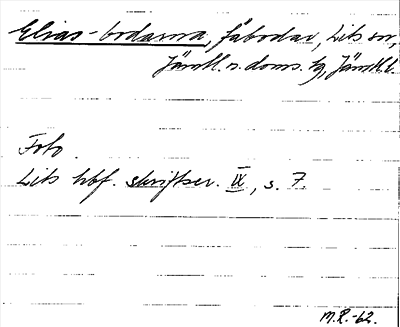 Elias-bodarna, fäbodar, Lits sn,
Jämtl. n. doms. tg, Jämtl. l.
Foto
Lits hbf. skriftser. IX, s. 7.
M.R.-62.